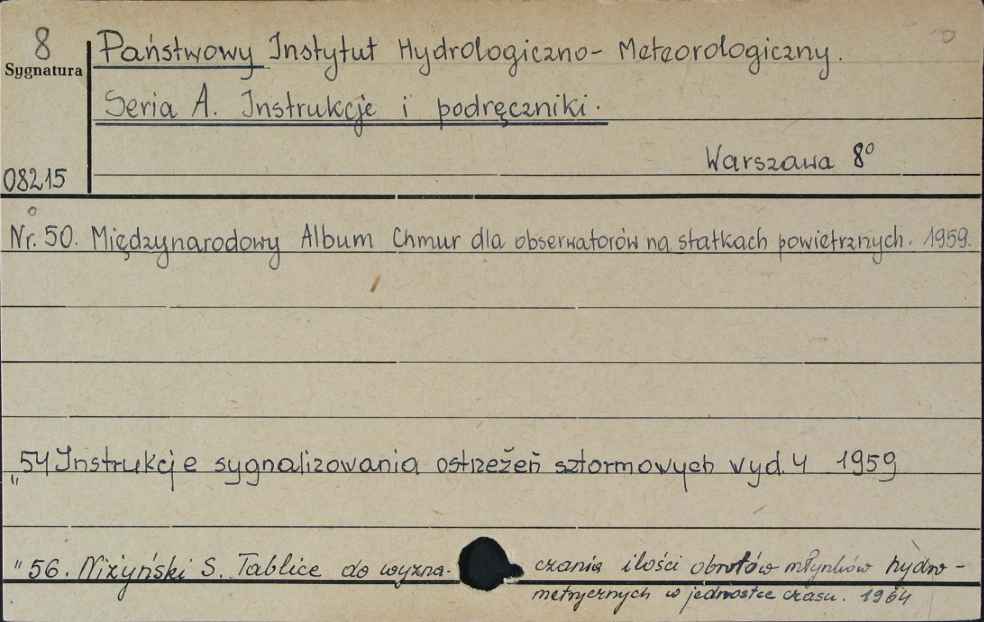 8
Sygnatura
Państwowy Instytut Hydrologiczno-Meteorologiczny.
Seria A. Instrukcje i podręczniki.
Warszawa 8°
08215
Nr. 50. Międzynarodowy Album Chmur dla obserwatorów na statkach powietrznych. 1959.
" 54 Instrukcje sygnalizowania ostrzeżeń sztormowych wyd. 4 1959
" 56. Niżyński S. Tablice do wyzna- czania ilości obrotów młynków hydro-
metrycznych w jednostce czasu. 1964